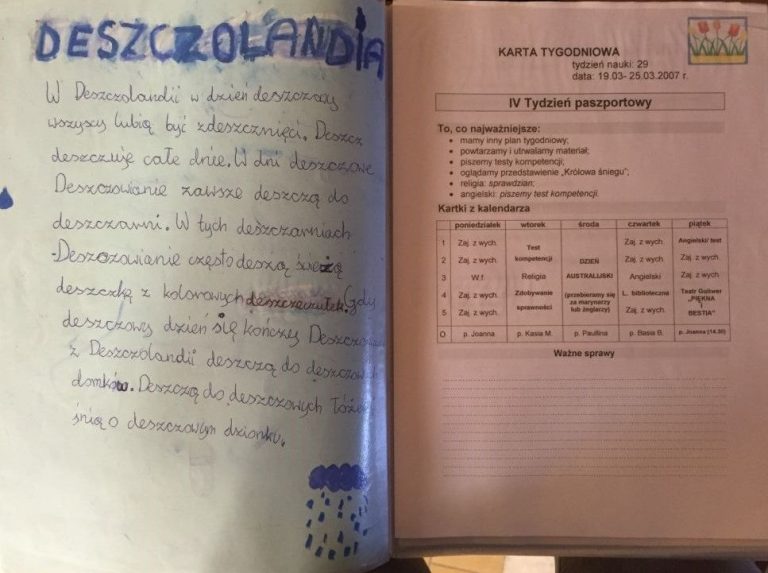 DESZCZOLANDIA
W Deszczolandii w dzień deszczowy
wszyscy lubią być zdeszcznięci. Deszcz
deszczuje całe dnie. W dni deszczowe
Deszczowianie zawsze deszczą do
deszczarni. W tych deszczarniach
Deszczowianie często deszczą świeżą
deszczką z kolorowych deszczeczułek. Gdy
deszczowy dzień się kończy
z Deszczolandii deszczą do
domków. Deszczą do deszczowych
śnią o deszczowym dzionku.
KARTA TYGODNIOWA
tydzień nauki: 29
data: 19.03- 25.03.2007 r.
IV Tydzień paszportowy
To, co najważniejsze:
• mamy inny plan tygodniowy;
• powtarzamy i utrwalamy materiał;
• piszemy testy kompetencji;
• oglądamy przedstawienie „Królowa śniegu";
• religia: sprawdzian;
• angielski: piszemy test kompetencji.
Kartki z kalendarza
poniedziałek wtorek środa czwartek piątek
1 Zaj. z wych. Test kompetencji DZIEŃ AUSTRALIJSKI (przebieramy się za marynarzy lub żeglarzy) Zaj. z wych. Angielski/ test
2 Zaj. z wych. Zaj. z wych. Zaj. z wych
3 W.f. Religia Angielski Zaj. z wych
4 Zaj. z wych. Zdobywanie sprawności L. biblioteczna Teatr Guliwer „PIĘKNA I BESTIA"
5 Zaj. z wych. Zaj. z wych.
O p. Joanna p. Kasia M. p. Paulina p. Basia B. p. Joanna (14.30)
Ważne sprawy